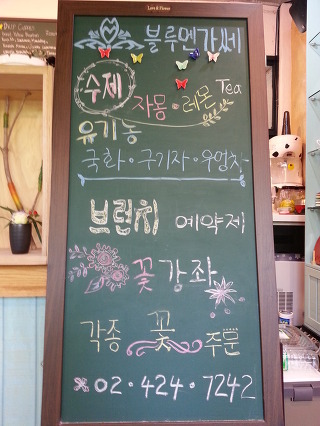 Love & Flower
블루멘가쎄
수제
자몽·레몬 Tea
유기농
국화·구기자·우엉차
브런치 예약제
꽃 강좌
각종 꽃 주문
※ 02·424·7242